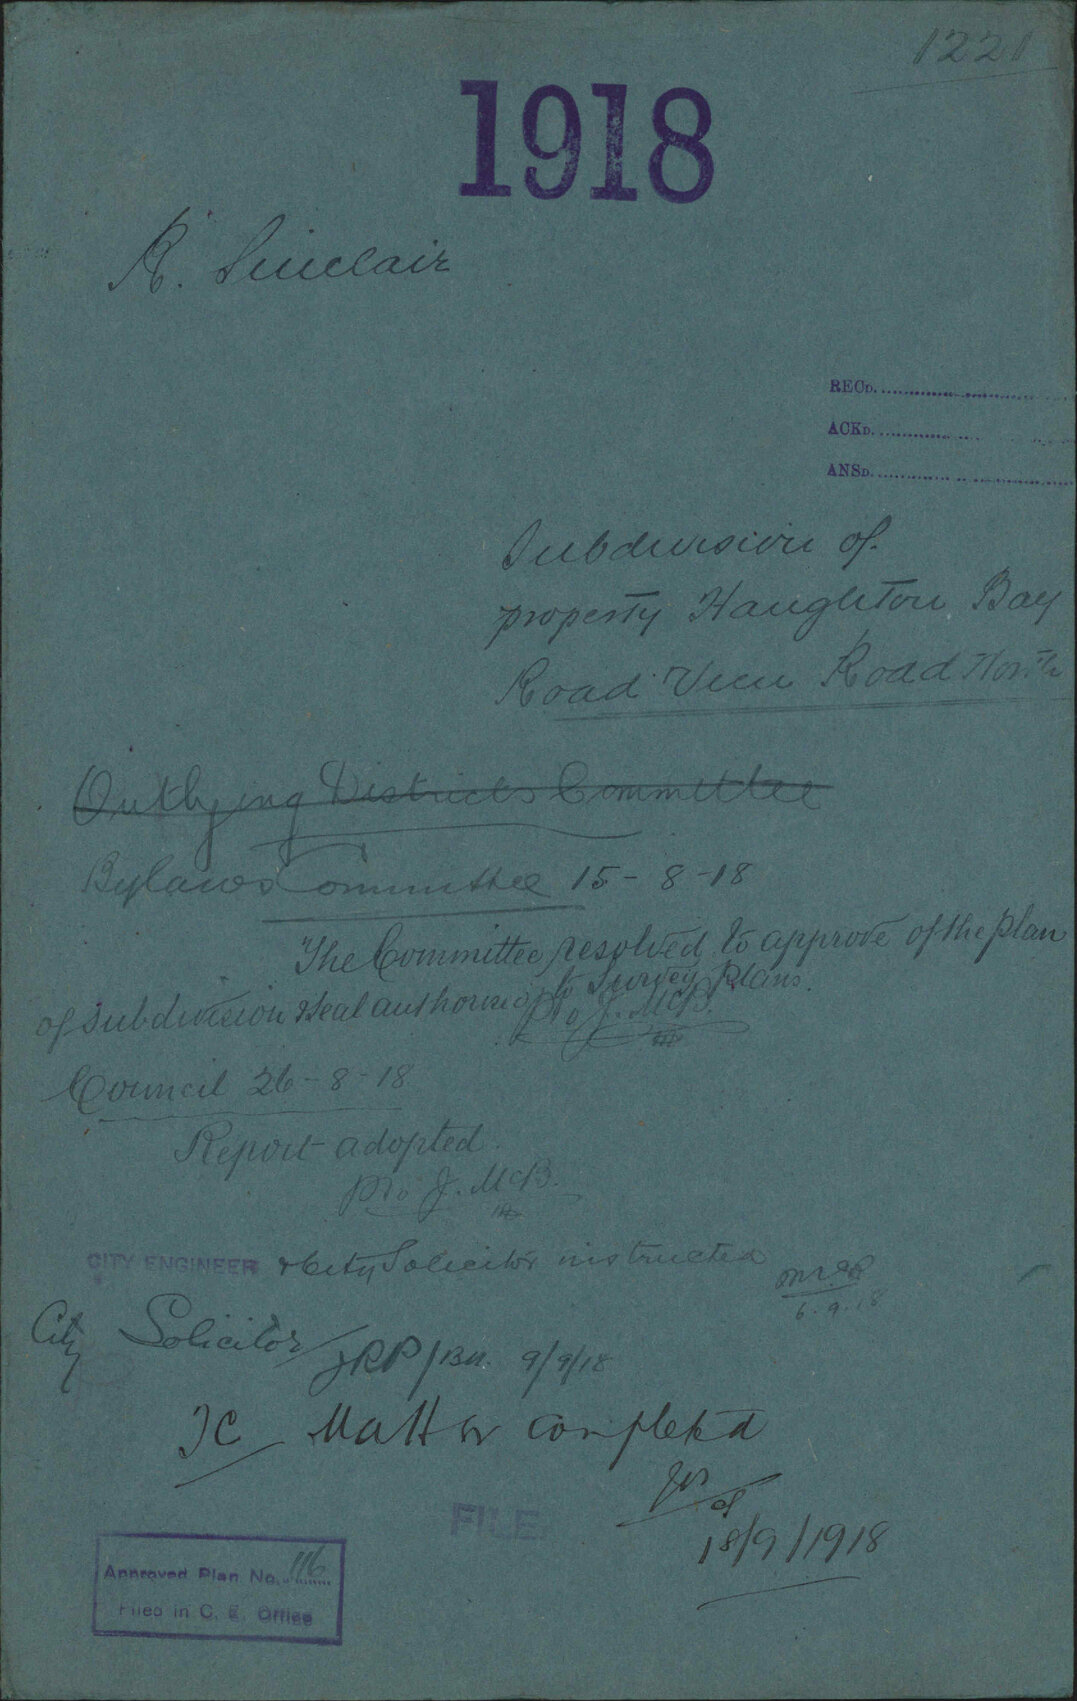 1221
1918
R. Sinclair
RECD.
ACKD.
ANSD.
Subdivision of
property Haughton Bay
Road View Road North
Outlying Districts Committee
Bylaws Committee 15-8-18
The Committee resolved to approve of the plan
of subdivision & seal authorised to Survey Plans.
pro J. McB.
Council 26-8-18
Report adopted.
pro J. McB.
CITY ENGINEER & City Solicitor instructed
6.9.18
City Solicitor
JRP/BM. 9/9/18
TC Matter completed
18/9/1918
FILE
Approved Plan No. 116
Filed in C. E. Office